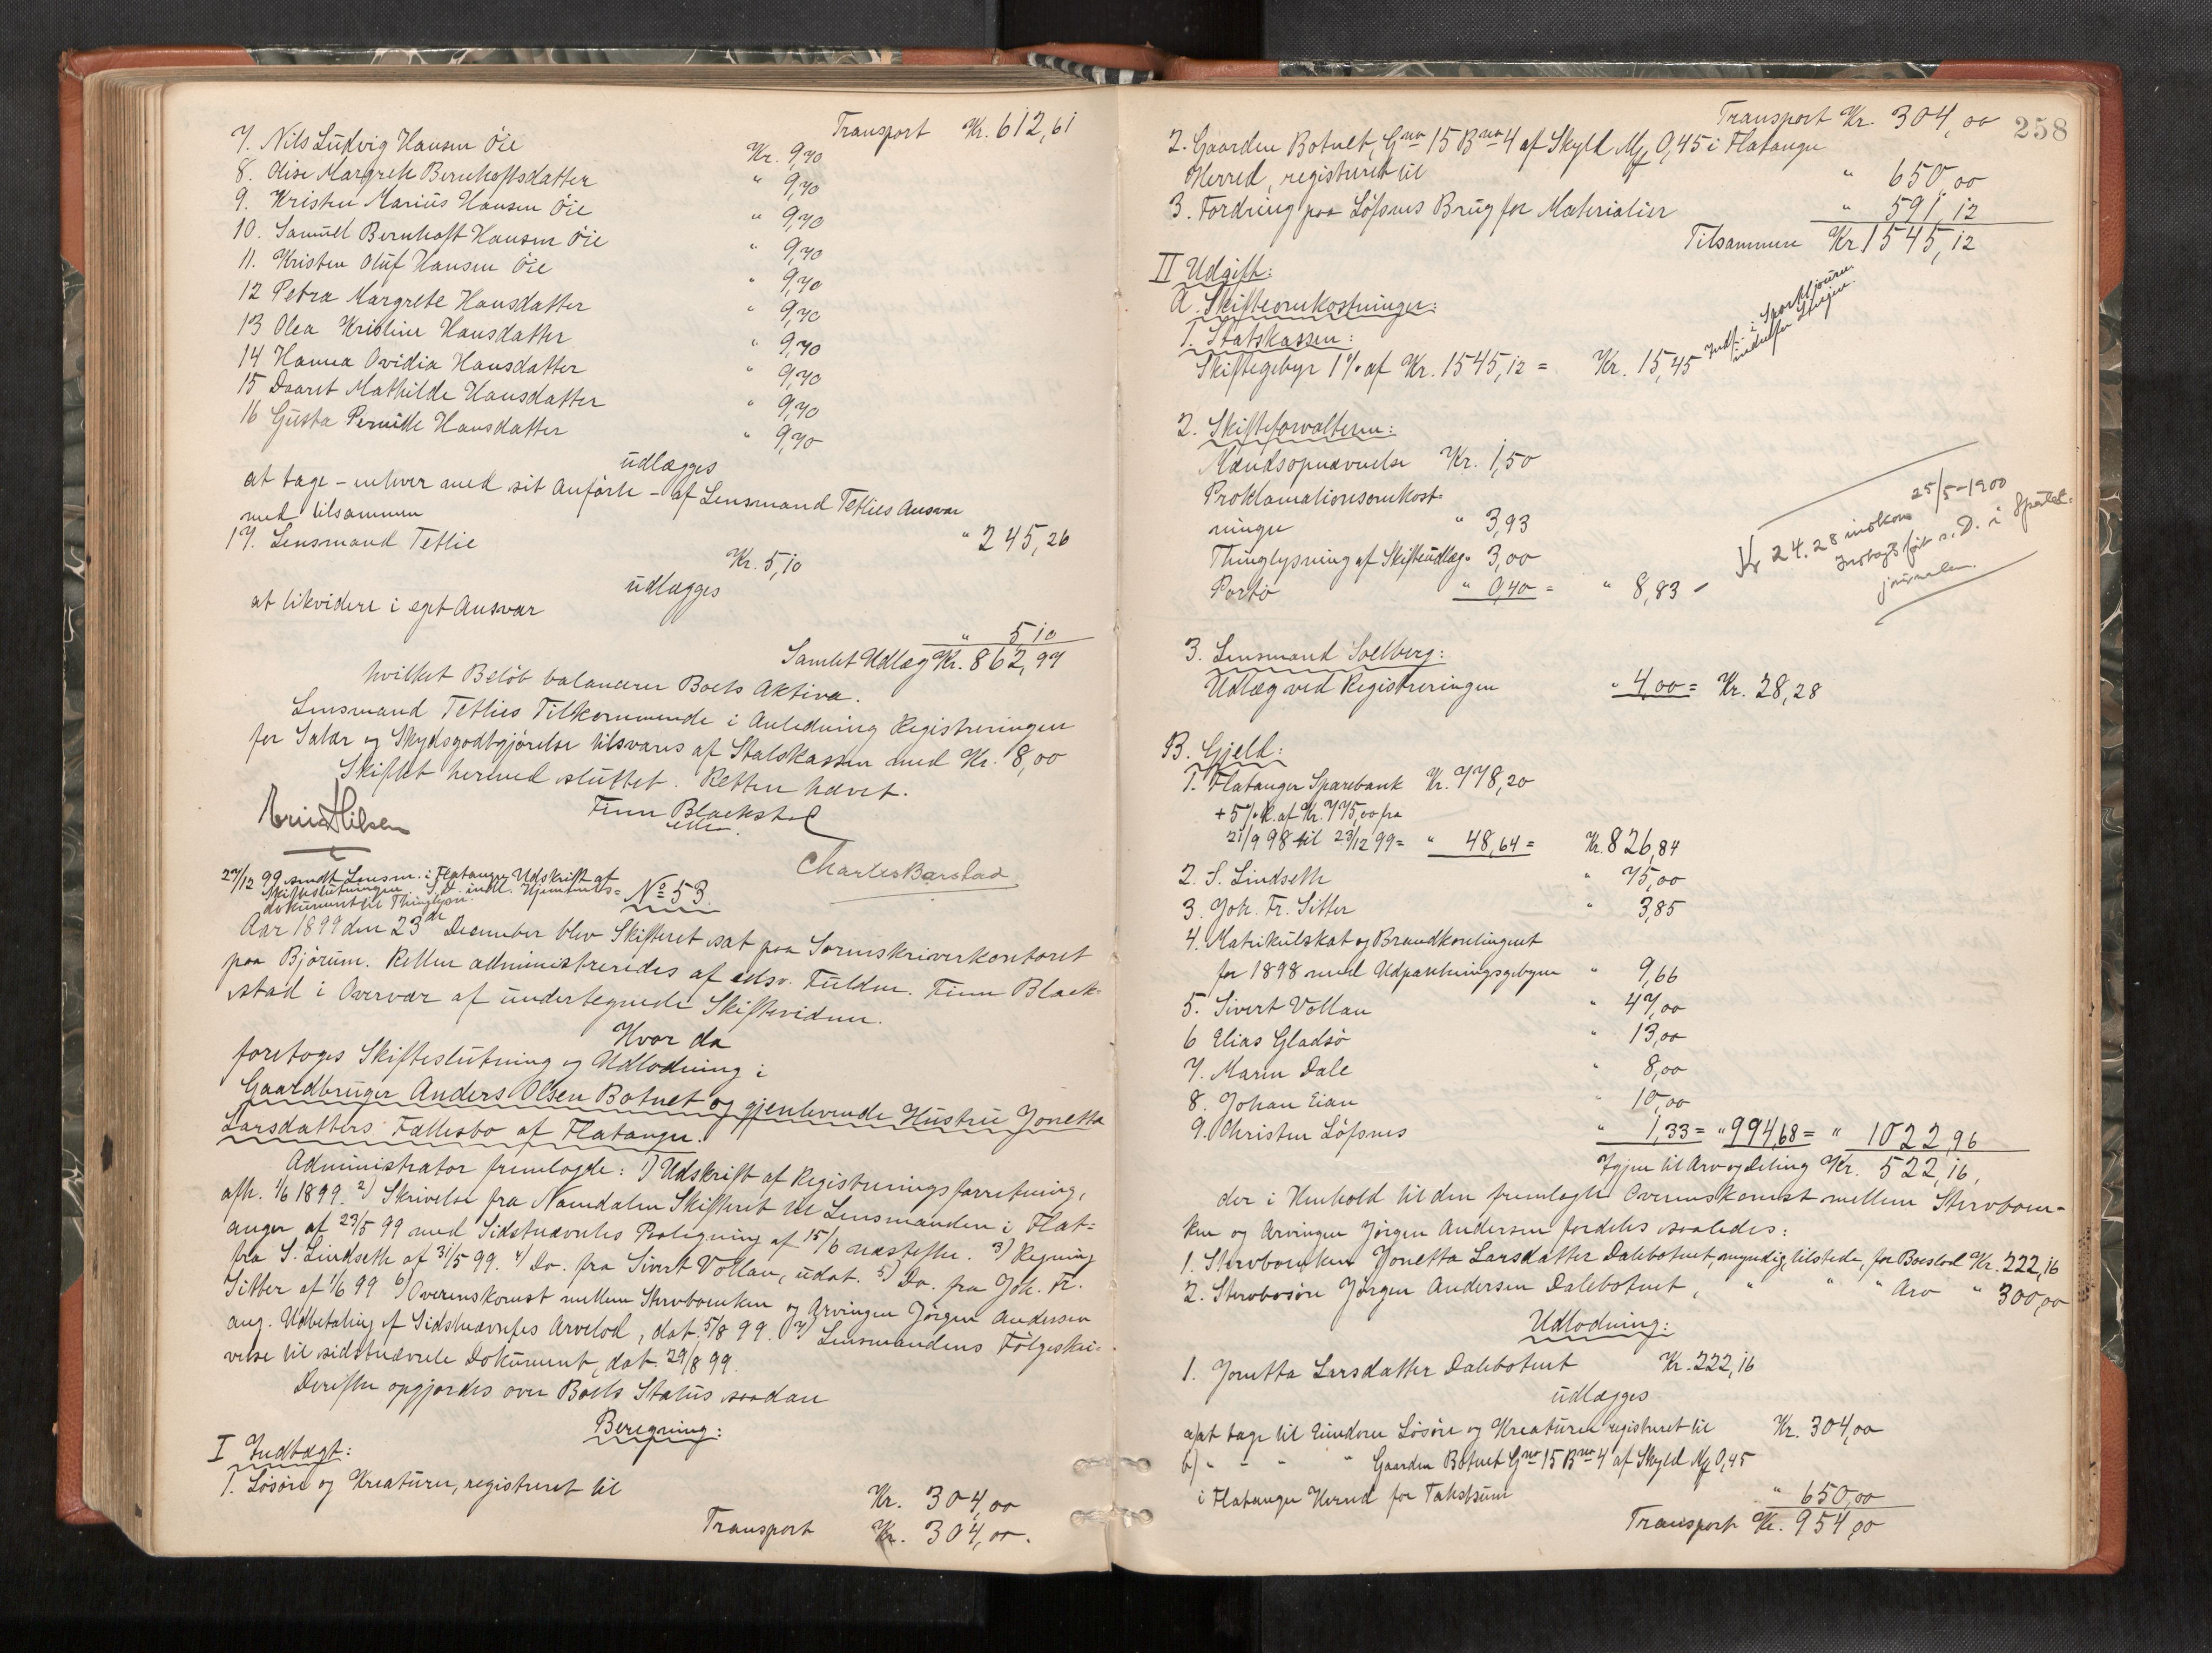 Transport Kr. 612,61
7. Nils Ludvig Hansen Öie Kr. 9,70
8. Elise Margrete Bernhoftsdatter " 9,70
9. Kristen Marius Hansen Öie " 9,70
10. Samuel Bernhoft Hansen Öie " 9,70
11. Kristen Oluf Hansen Öie " 9,70
12 Petra Margrete Hansdatter " 9,70
13 Olea Kristine Hansdatter " 9,70
14 Hanna Ovidia Hansdatter " 9,70
15 Daaret Mathilde Hansdatter " 9,70
16 Gusta Pernille Hansdatter " 9,70
udlægges
at tage - enhver med sit Anförte - af Lensmand Tetlies Ansvar
med tilsammen " 245,26
17. Lensmand Tetlie Kr. 5,10
udlægges
at likvidere i eget Ansvar " 5 10
Samlet Udlæg Kr. 862,97
hvilket Belöb balancerer Boets Aktiva.
Lensmand Tetlies Tilkommende i Anledning Registreringen
for Salær og Skydsgodtgjörelse tilsvares af Statskassen med Kr. 8,00
Skiftet hermed sluttet. Retten hævet.
Finn Blackstad
Charles Barstad
27/12 99 sendt Lensm. i Flatanger Udskrift af
Skifteslutningen. S.D. indl. Hjemmels=
dokument til Thinglysn.
No 53.
Aar 1899 den 23de December blev Skifteret sat paa Sorenskriverkontoret
paa Björum. Retten administreredes af edsv. Fuldm. Finn Black=
stad i Overvær af undertegnede Skiftevidner.
Hvor da
foretoges Skifteslutning og Udlodning i
Gaardbruger Anders Olsen Botnet og gjenlevende Hustru Jonetta
Larsdatters Fællesbo af Flatanger.
Administrator fremlagde: 1) Udskrift af Registreringsforretning,
afh. 1/6 1899. 2) Skrivelse fra Namdalen Skifteret til Lensmanden i Flat=
anger af 23/5 99 med Sidstnævntes Paategning af 15/6 næstefter. 3) Regning
fra S. Lindseth af 31/5 99. 4) Do. fra Sivert Vollan, udat. 5) Do. fra Joh. Fr.
Sitter af 1/6 99 6) Overenskomst mellem Stervboenken og Arvingen Jörgen Andersen
ang. Udbetaling af Sidstnævntes Arvelod, dat. 5/8 99. 7) Lensmandens Fölgeskri=
velse til sidstnævnte Dokument, dat. 29/8 99.
Derefter opgjordes over Boets Status saadan
Beregning:
I Indtægt:
1. Lösöre og Kreaturer, registreret til Kr. 304,00
Transport Kr. 304,00.
258
Transport Kr. 304,00
2. Gaarden Botnet, Gno 15 Bno 4 af Skyld Mk 0,45 i Flatanger
Herred, registreret til " 650,00
3. Fordring paa Löfsnes Brug for Materialier " 591,12
Tilsammen Kr 1545,12
II Udgift:
A. Skifteomkostninger:
1. Statskassen:
Skiftegebyr 1% af Kr. 1545,12 = Kr. 15,45
Indf. i Sporteljournalen
2. Skifteforvalteren:
Mændsopnævnelse Kr. 1,50
Proklamationsomkost-
ninger " 3,93
Thinglysning af Skifteudlæg " 3,00
Porto " 0,40 = " 8,83
Kr 24.28 indkom 25/5-1900
Indtægtsfört s. D. i Sportel-
journalen.
3. Lensmand Solberg:
Udlæg ved Registreringen " 4,00 = Kr. 28,28
B. Gjeld:
1. Flatanger Sparebank Kr. 778,20
+ 5% R. af Kr. 775,00 fra
21/9 98 til 23/12 99 = " 48,64 = Kr. 826,84
2. S. Lindseth " 75,00
3. Joh. Fr. Sitter " 3,85
4. Matrikulskat og Brandkontingent
for 1898 med Udpantningsgebyrer " 9,66
5. Sivert Vollan " 47,00
6 Elias Gladsö " 13,00
7. Maren Dale " 8,00
8. Johan Eian " 10,00
9. Christen Löfsnes " 1,33 = " 994,68 = " 1022,96
Igjen til Arv og Deling Kr. 522,16,
der i Henhold til den fremlagte Overenskomst mellem Stervboen-
ken og Arvingen Jörgen Andersen fordeles saaledes:
1. Stervboenken Jonetta Larsdatter Dalebotnet, myndig, tilstede, for Boeslod Kr. 222,16
2. Stervbosön Jörgen Andersen Dalebotnet, " " " Arv " 300,00
Udlodning:
1. Jonetta Larsdatter Dalebotnet Kr. 222,16
udlægges
a) at tage til Eiendom Lösöre og Kreaturer registreret til Kr. 304,00
b) " " " " Gaarden Botnet Gno 15 Bno 4 af Skyld Mk 0,45
i Flatanger Herred for Takstsum " 650,00
Transport Kr. 954,00